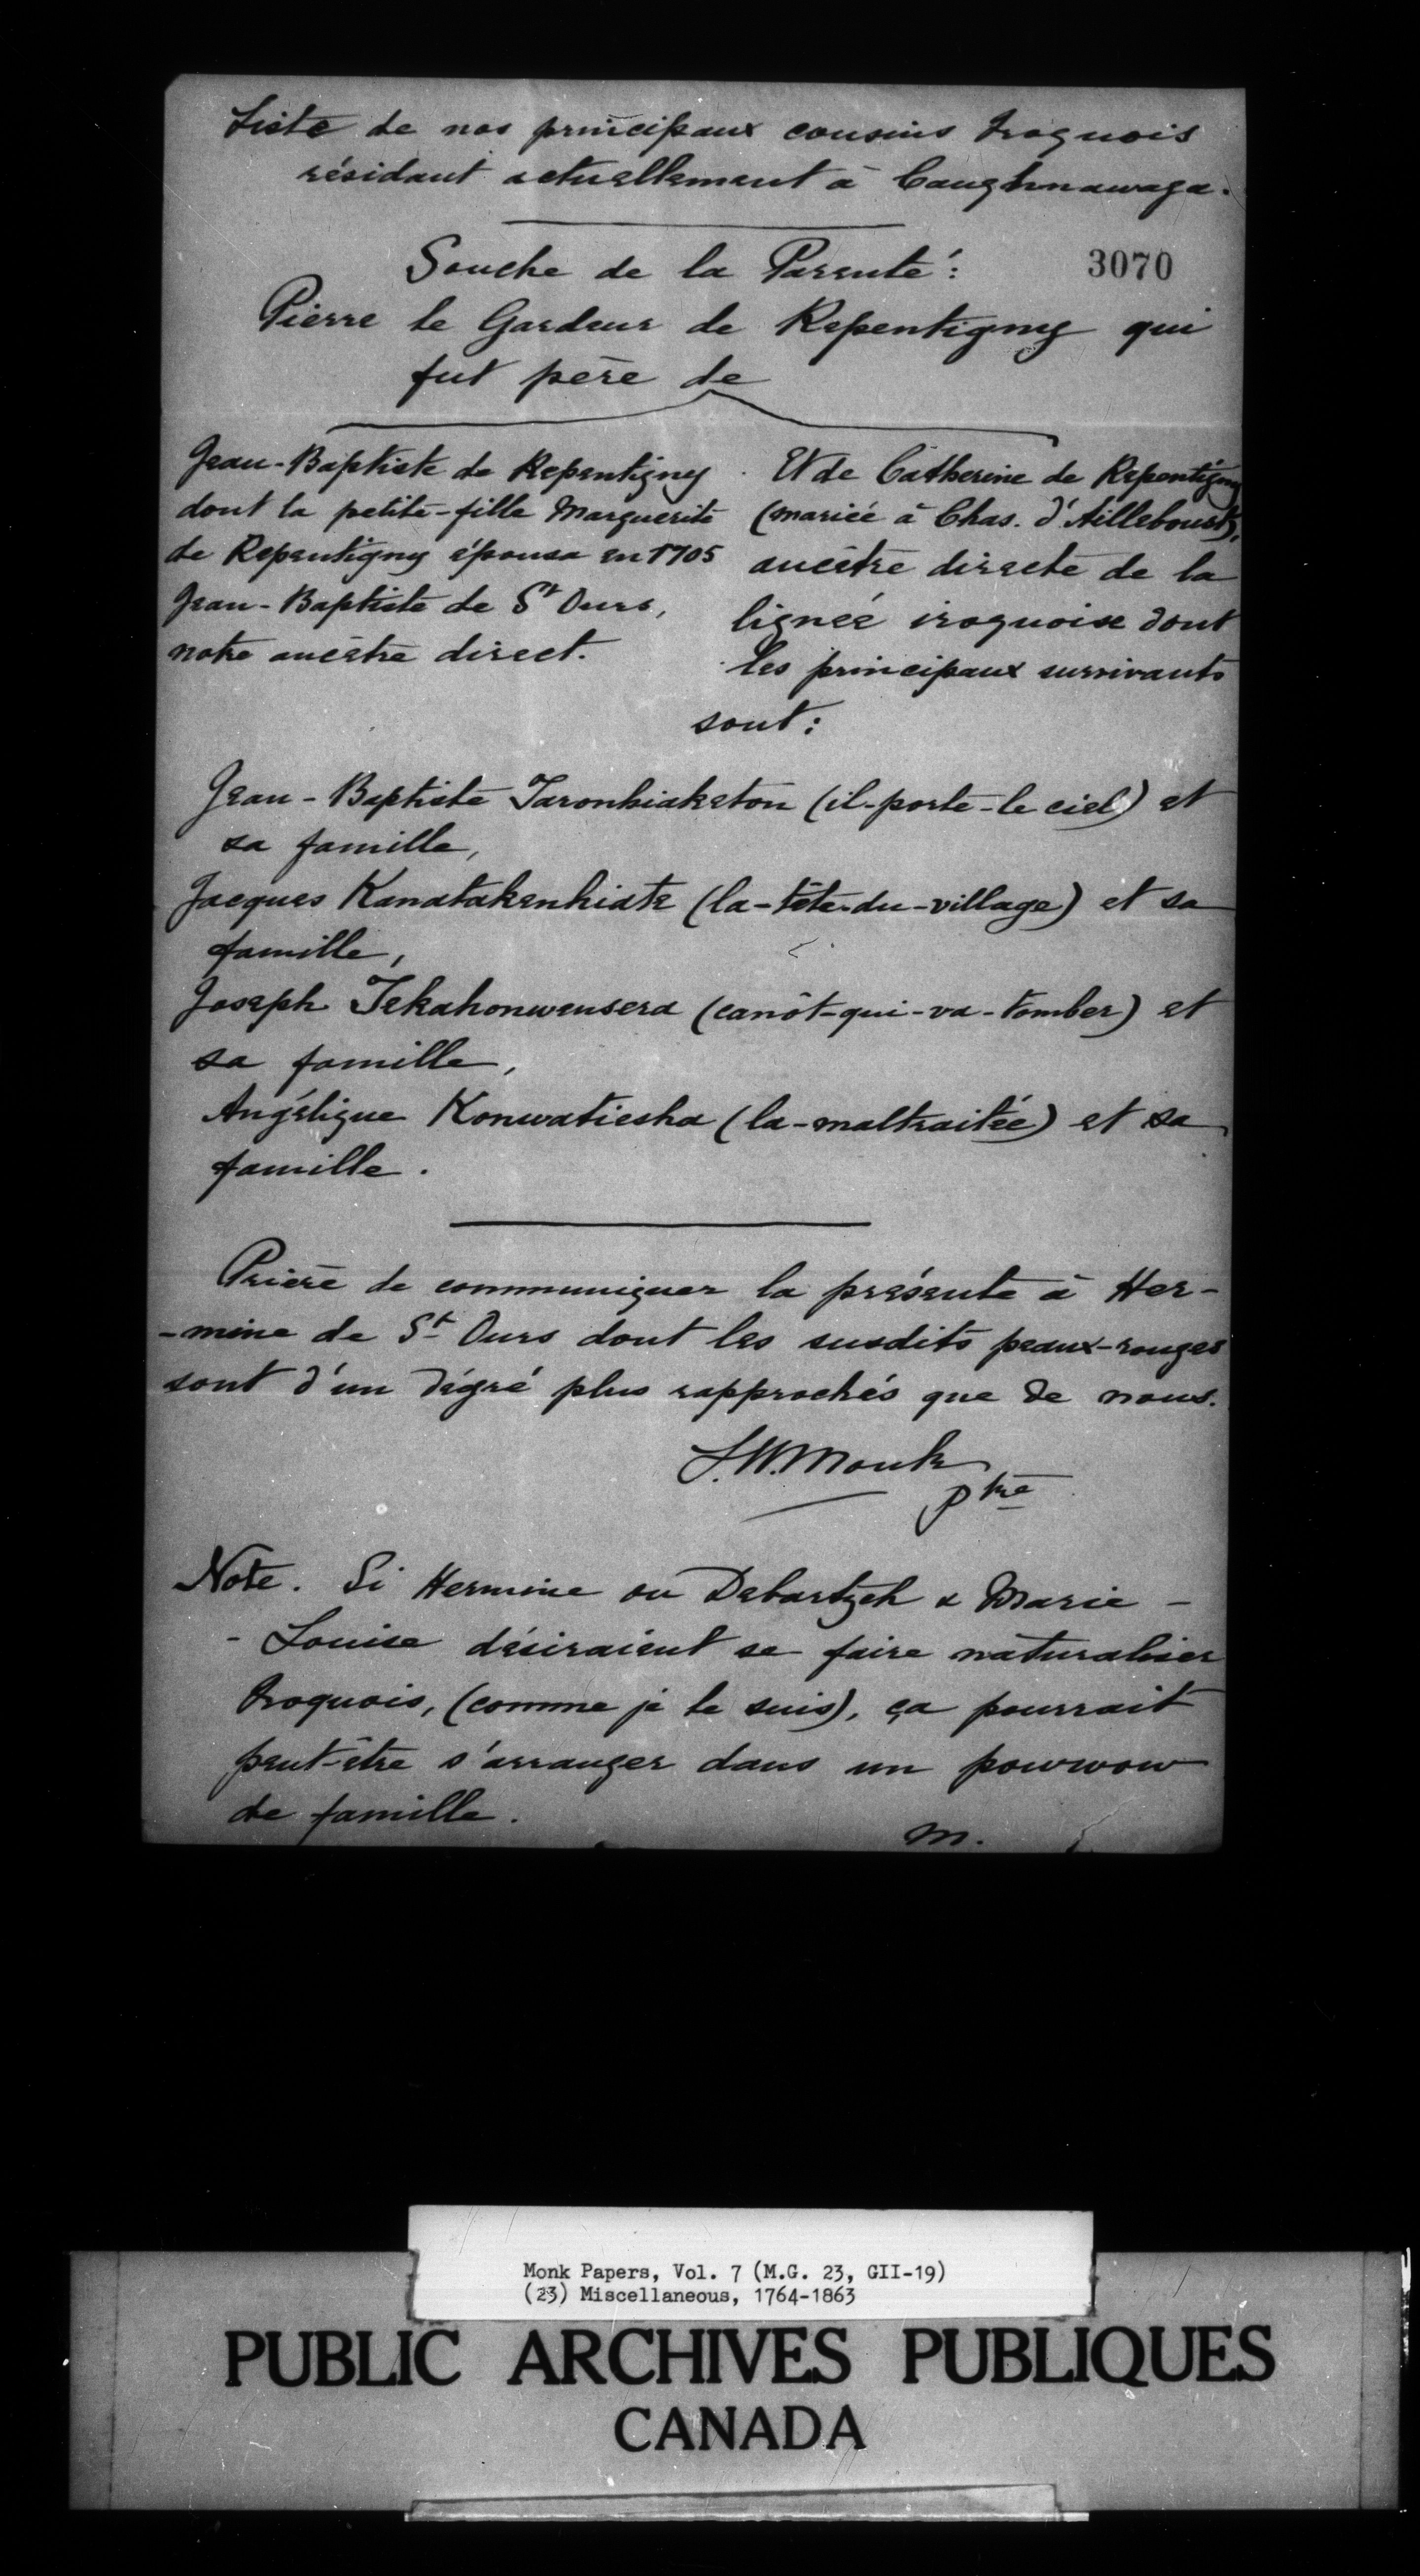 Liste de nos principaux cousins Iroquois
résidant actuellement à Caughnawaga.
Souche de la Parenté:
3070
Pierre le Gardeur de Repentigny qui
fut père de
Jean-Baptiste de Repentigny
dont la petite-fille Marguerite
de Repentigny épousa en 1705
Jean-Baptiste de St Ours,
notre ancêtre direct.
Et de Catherine de Repentigny
(mariée à Chas. d'Ailleboust),
ancêtre directe de la
lignée iroquoise dont
les principaux survivants
sont:
Jean-Baptiste Taronhiaketon (il-porte-le ciel) et
sa famille,
Jacques Kanatakenhiate (la-tête-du-village) et sa
famille,
Joseph Tekahonwensera (canôt-qui-va-tomber) et
sa famille,
Angélique Konwatiesha (la-maltraitée) et sa
famille.
Prière de communiquer la présente à Her-
-mine de St Ours dont les susdits peaux-rouges
sont d'un dégré plus rapprochés que de nous.
Ptre
Note. Si Hermine ou Debartzch & Marie-
-Louise désiraient se faire naturaliser
Iroquois, (comme je le suis), ça pourrait
peut-être s'arranger dans un powwow
de famille.
M.
Monk Papers, Vol. 7 (M.G. 23, GII-19)
(23) Miscellaneous, 1764-1863
PUBLIC ARCHIVES PUBLIQUES
CANADA